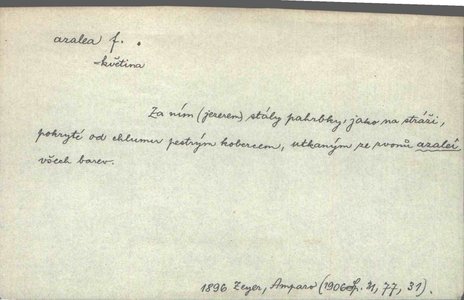 azalea f.
-květina
Za ním (jezerem) stály pahrbky, jako na stráži,
pokryté od chlumu pestrým kobercem, utkaným ze zvonů azaleí
všech barev.
1896 Zeyer, Amparo (1906 31, 77, 31).